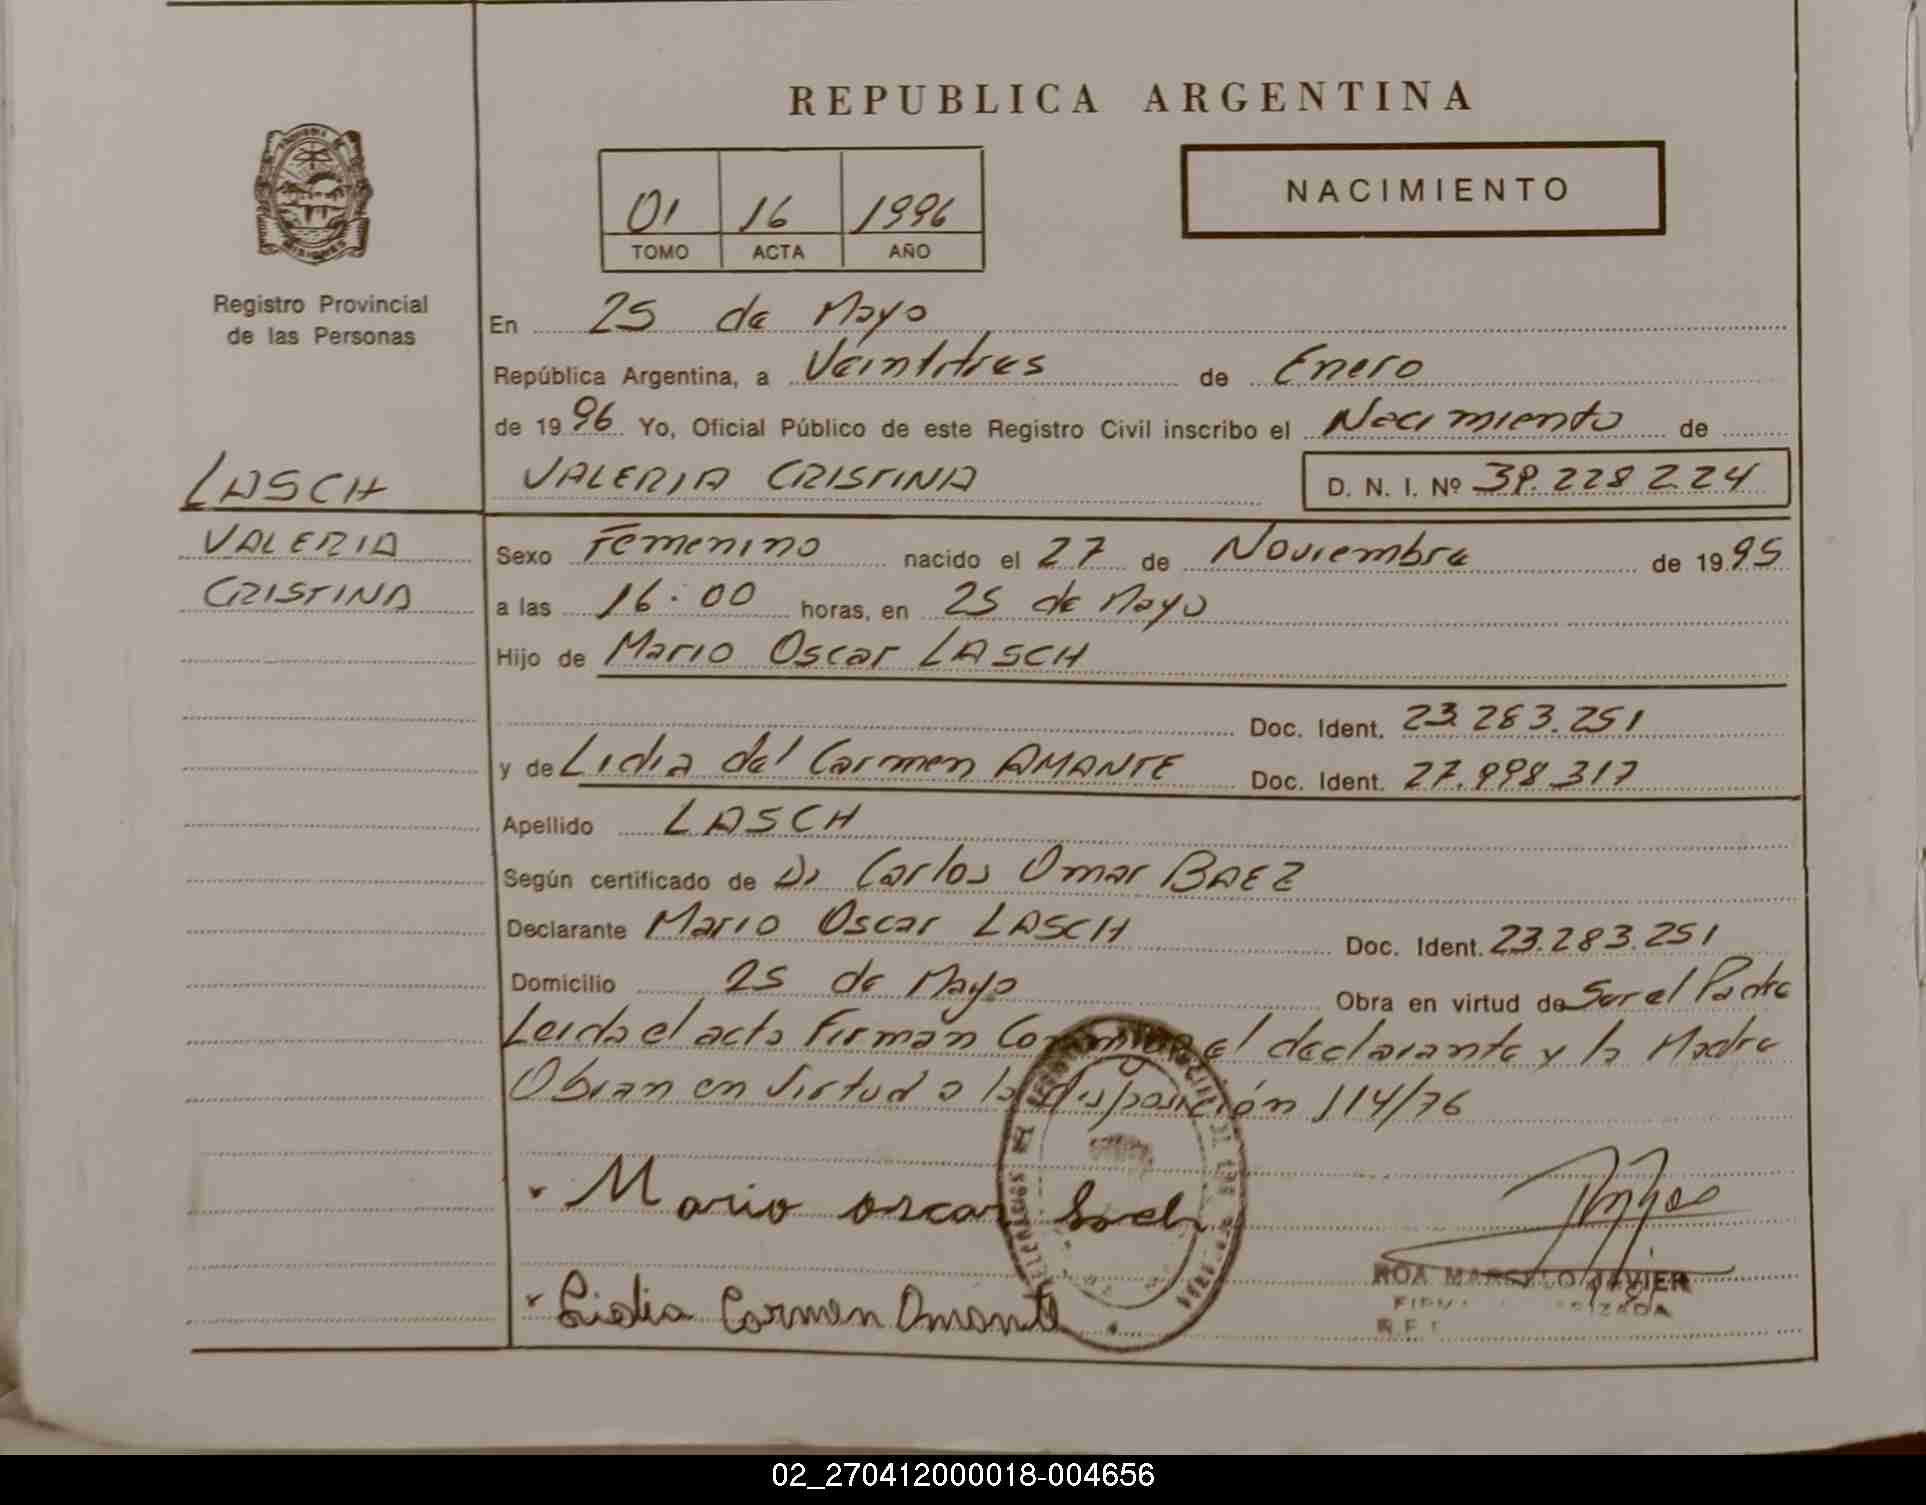 REPUBLICA ARGENTINA
NACIMIENTO
01 16 1996
TOMO ACTA AÑO
Registro Provincial
de las Personas
En 25 de Mayo
República Argentina, a Veintitres de Enero
de 1996 Yo, Oficial Público de este Registro Civil inscribo el Nacimiento de
VALERIA CRISTINA D. N. I. Nº 39.228.224
LASCH
VALERIA
CRISTINA
Sexo Femenino nacido el 27 de Noviembre de 1995
a las 16:00 horas, en 25 de Mayo
Hijo de Mario Oscar LASCH
Doc. Ident. 23.283.251
y de Lidia del Carmen AMANTE Doc. Ident. 27.998.317
Apellido LASCH
Según certificado de Dr Carlos Omar BAEZ
Declarante Mario Oscar LASCH Doc. Ident. 23.283.251
Domicilio 25 de Mayo Obra en virtud de Ser el Padre
Leida el acta Firman Conmigo el declarante y la Madre
Obran en Virtud a la disposición 114/76
Mario oscar Lasch
Lidia Carmen Amante
ROA MARCELO JAVIER
02_270412000018-004656